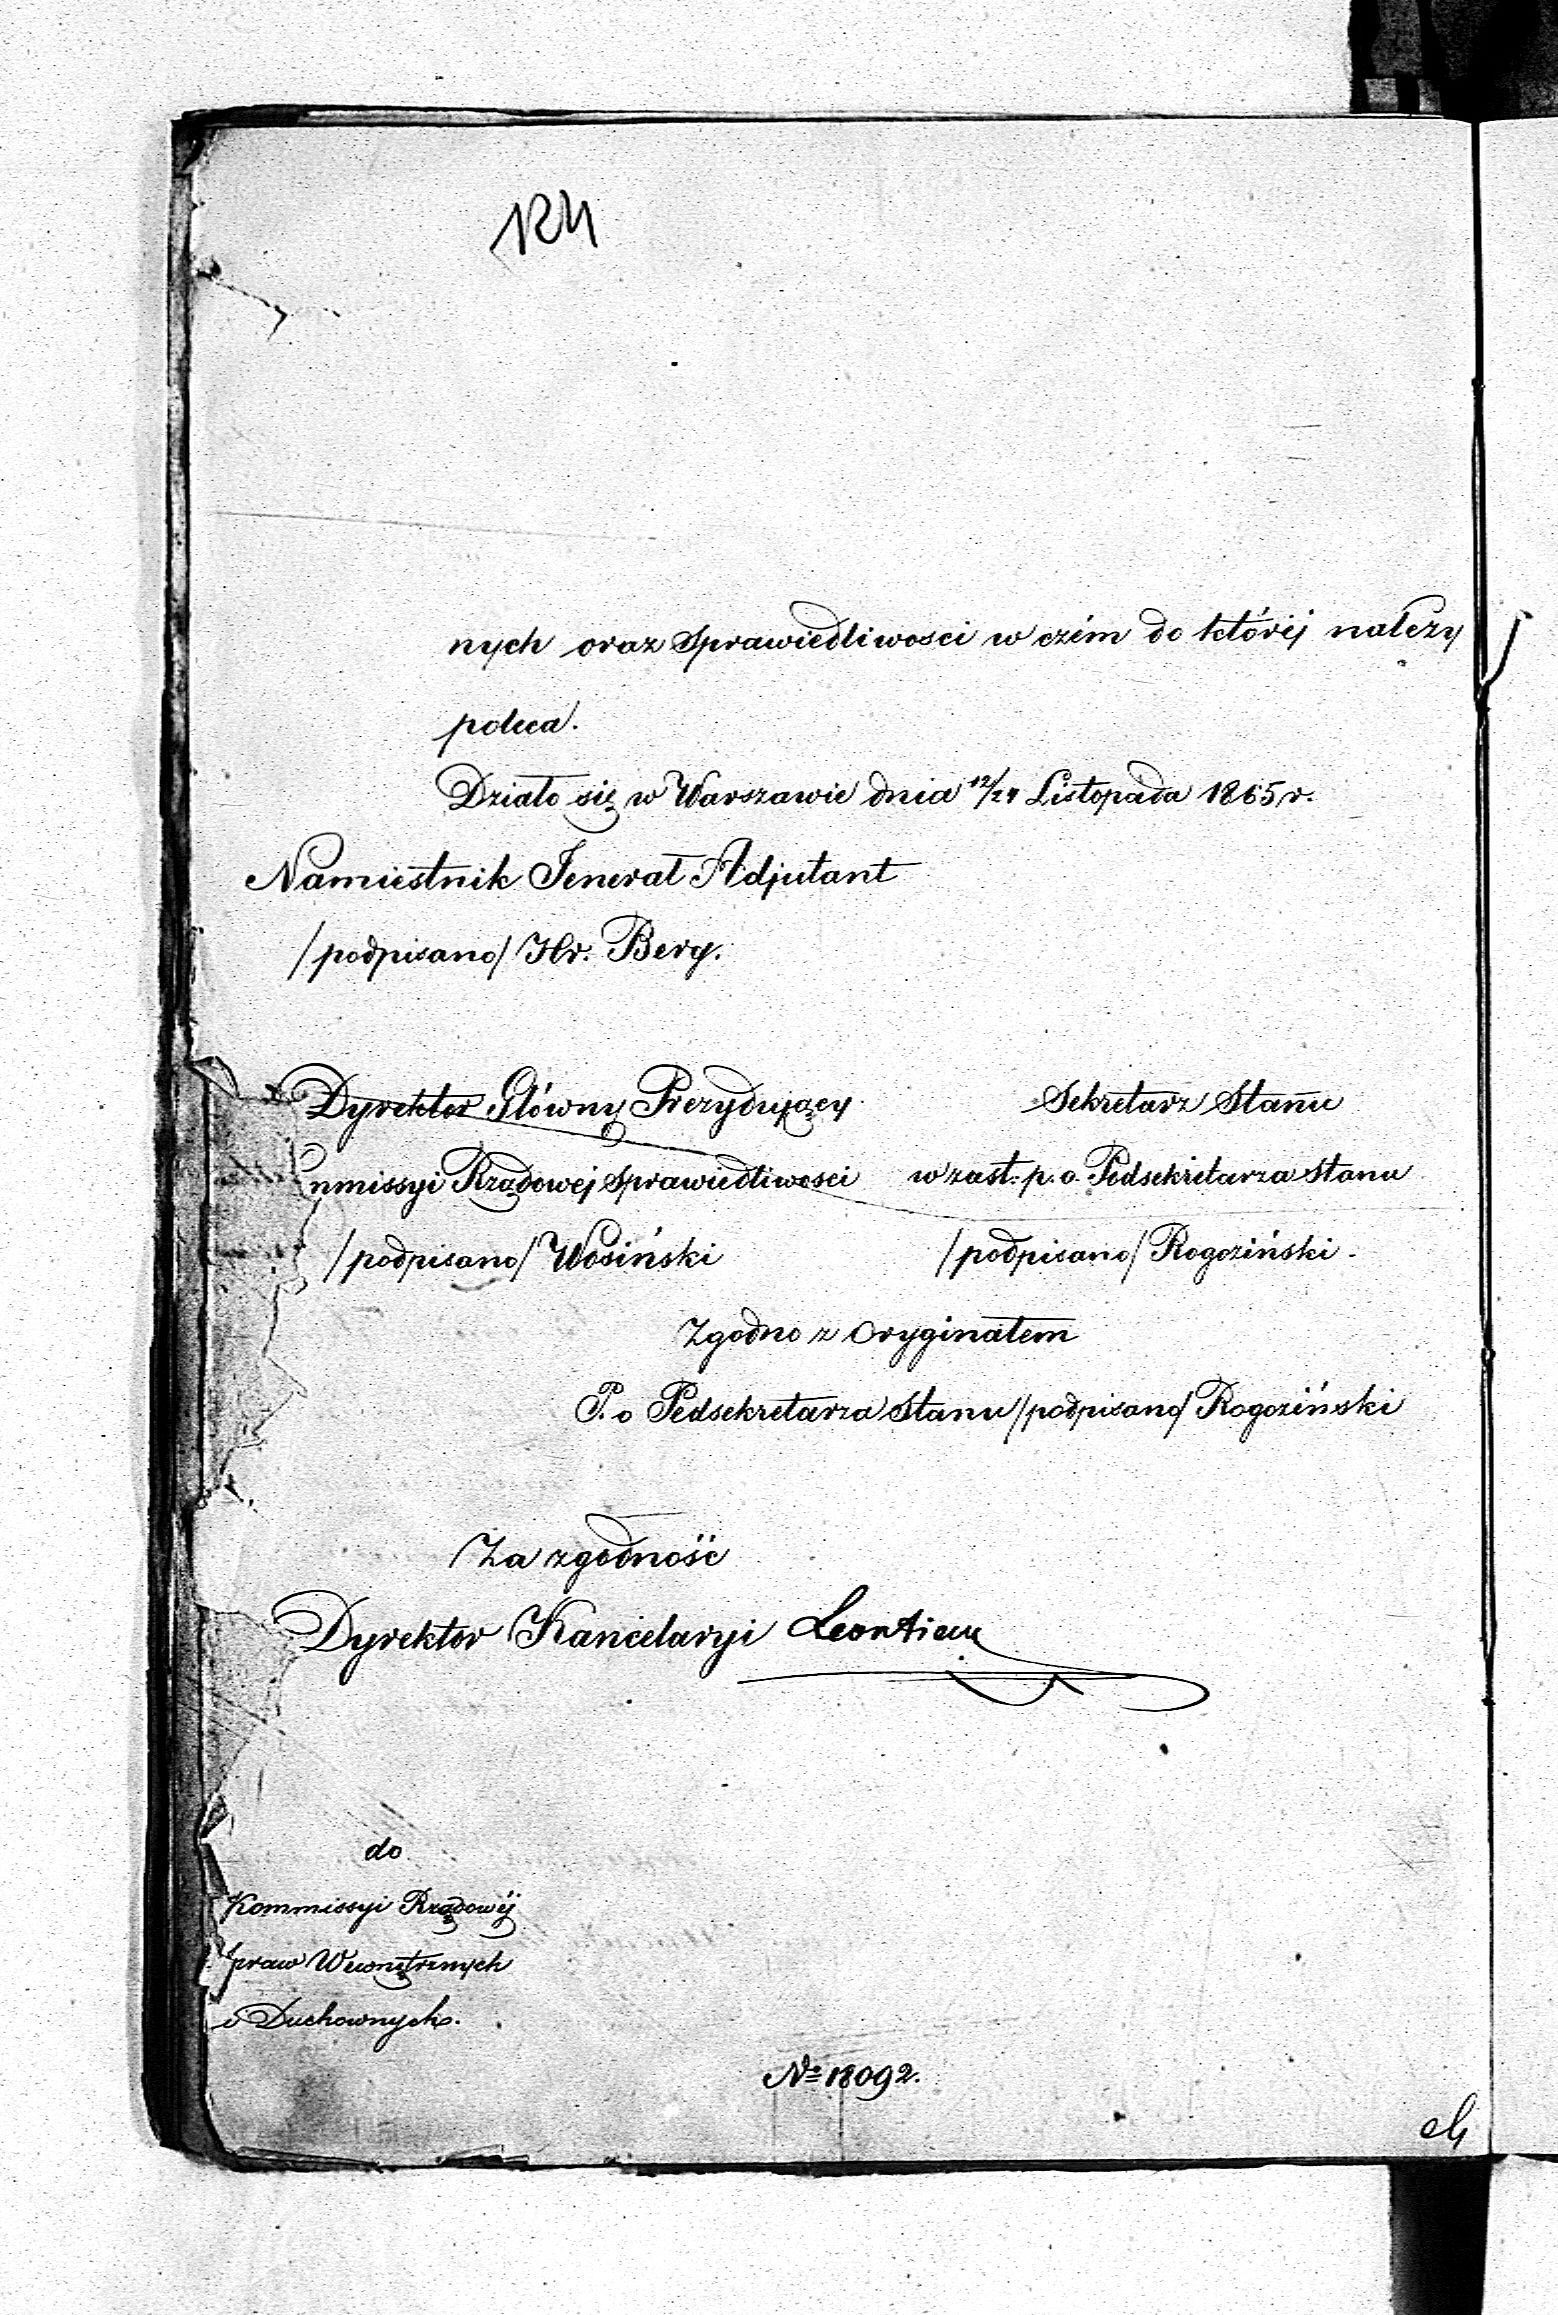 124
nych oraz Sprawiedliwosci w czém do któréj należy
poleca.
Działo się w Warszawie dnia 12/24 Listopada 1865 r.
Namiestnik Jenerał Adjutant
/podpisano/ Hr. Berg.
Dyrektor Główny Prezydujący
Sekretarz Stanu
mmissyi Rządowej Sprawiedliwosci
w zast. p. o. Podsekretarza Stanu
/podpisano/ Wosiński
/podpisano/ Rogoziński
Zgodno z Oryginałem
P. o Podsekretarza Stanu /podpisano/ Rogoziński
Za zgodność
Dyrektor Kancelaryi
do
Kommissyi Rządowéj
Spraw Wewnętrznych
i Duchownych.
№ 18092.